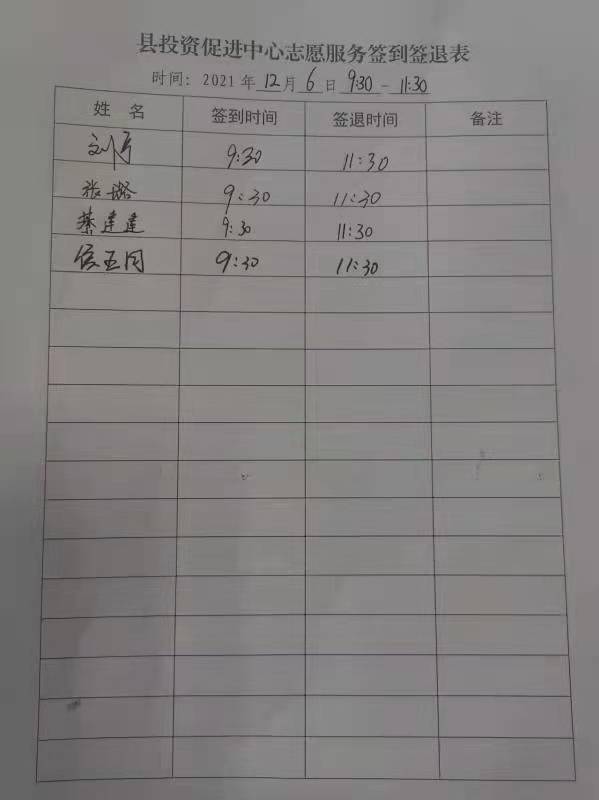 县投资促进中心志愿服务签到签退表
时间：2021年12月6日9:30-11:30
姓 名 签到时间 签退时间 备注
刘 9:30 11:30
张璐 9:30 11:30
蔡建建 9:30 11:30
侯玉同 9:30 11:30